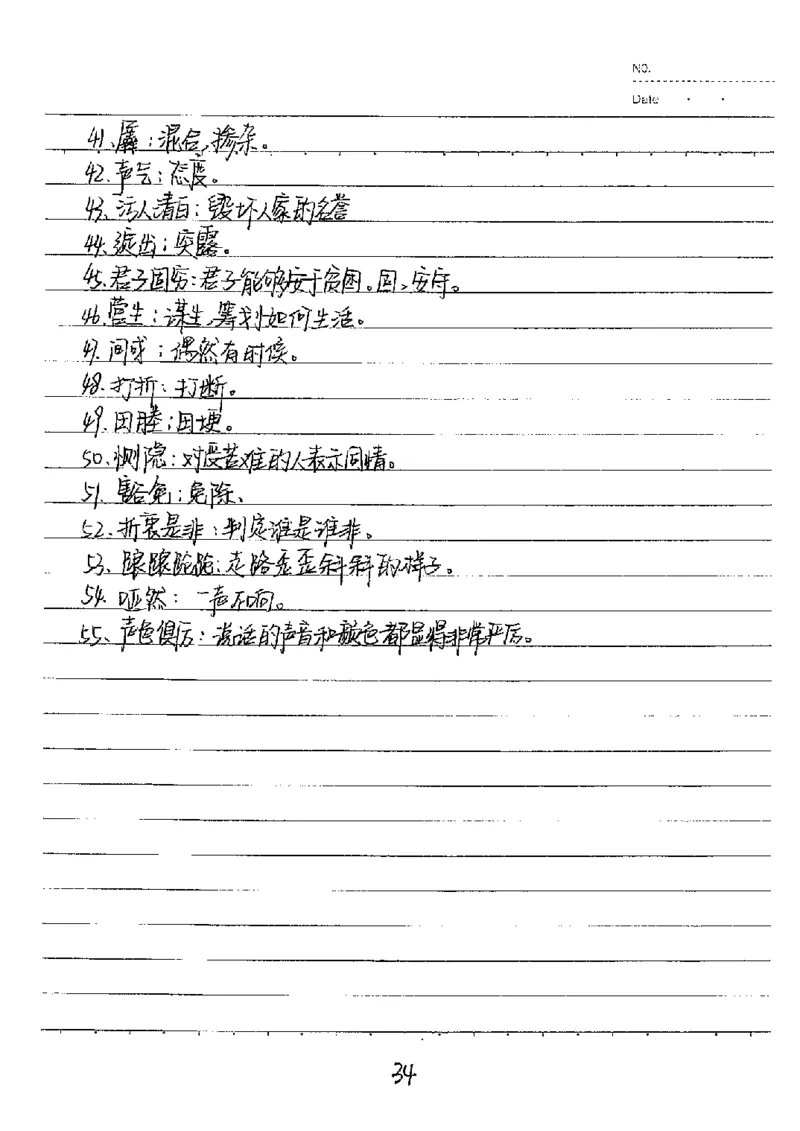 No.
Date
41、羼：混合，掺杂。
42. 声气：态度。
43、污人清白：毁坏人家的名誉
44、绽出：突露。
45、君子固穷：君子能够安于贫困。固，安守。
46、营生：谋生，筹划如何生活。
47. 间或：偶然有时候。
48. 打折：打断。
49. 田塍：田埂。
50、恻隐：对受苦难的人表示同情。
51. 豁免：免除、
52. 折衷是非：判定谁是谁非。
53、踉踉跄跄：走路歪歪斜斜的样子。
54. 哑然：一声不响。
55、声色俱厉：说话的声音和颜色都显得非常严厉。
34